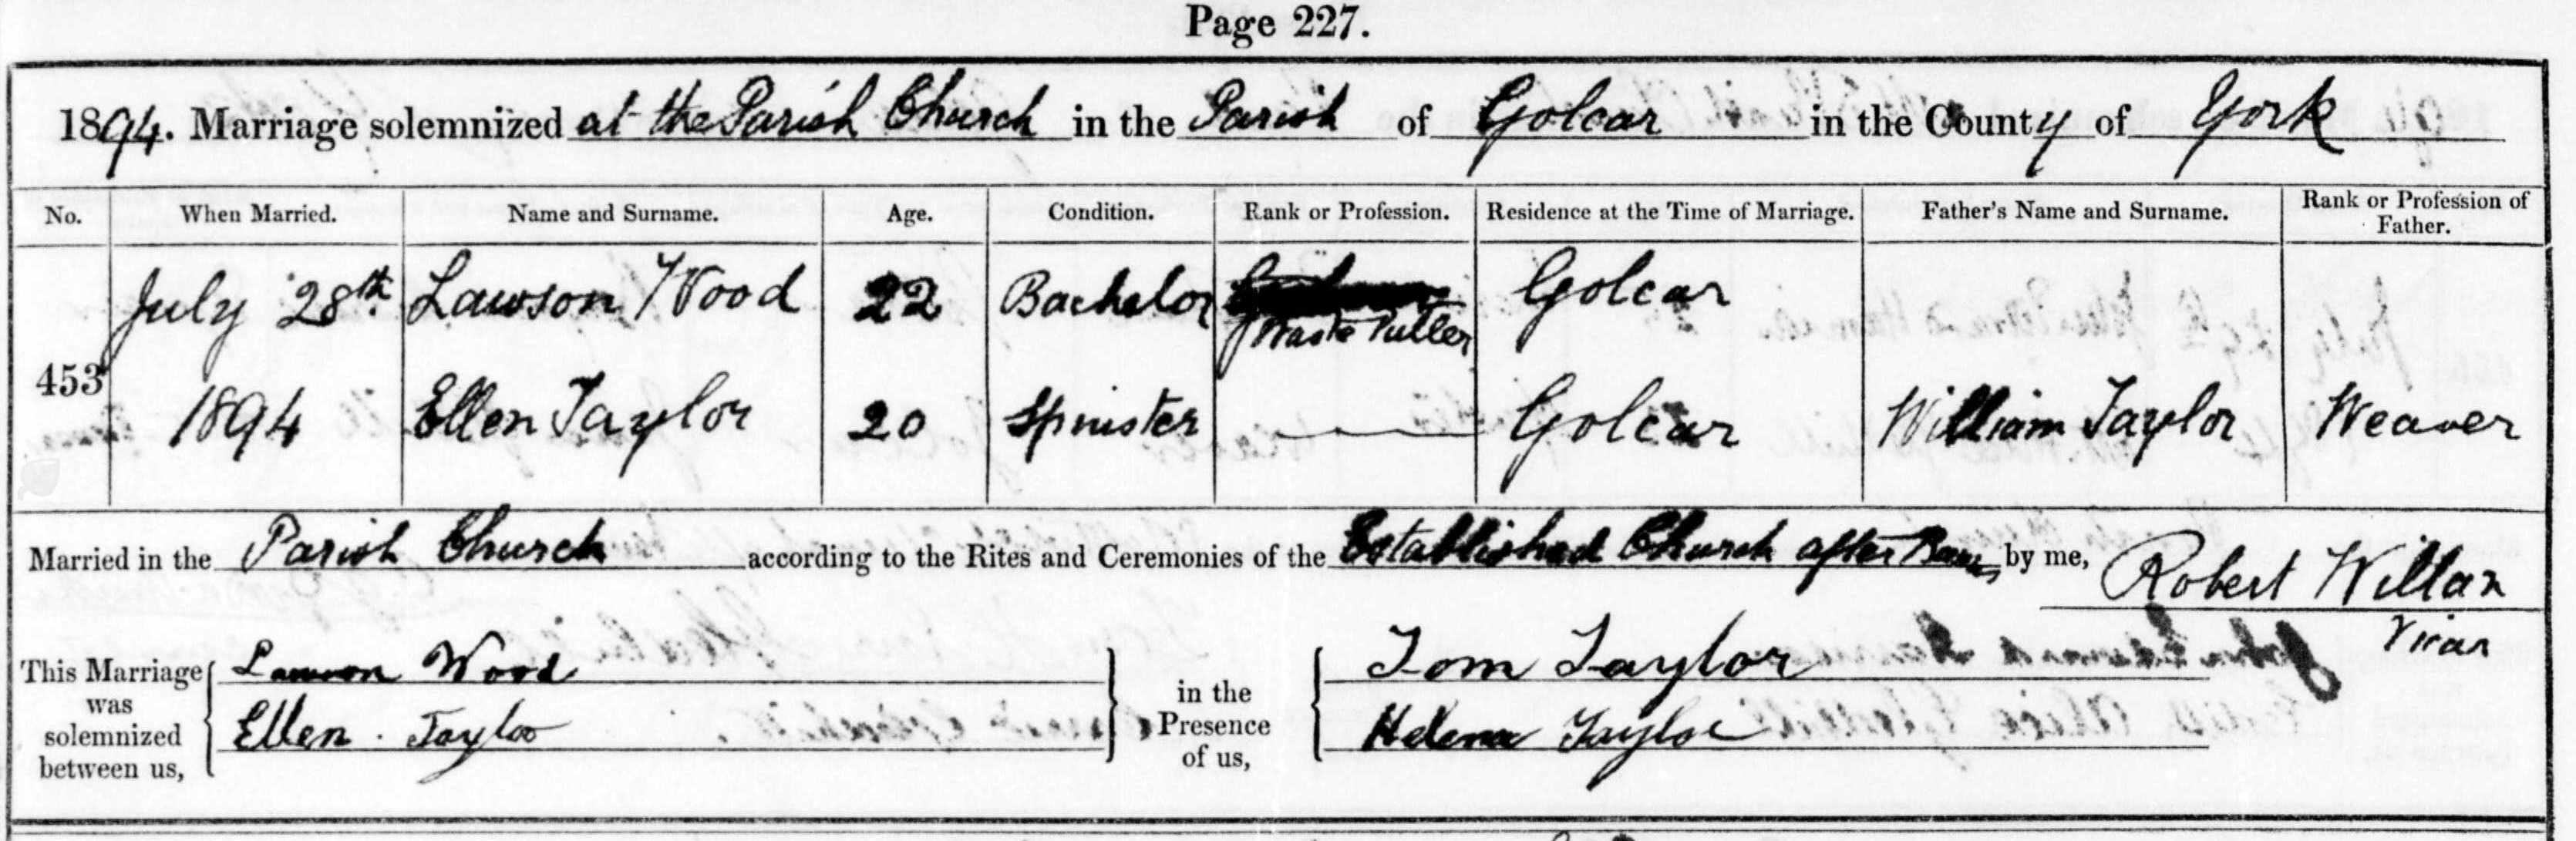 Page 227.
1894. Marriage solemnized at the Parish Church in the Parish of Golcar in the County of York
No. When Married. Name and Surname. Age. Condition. Rank or Profession. Residence at the Time of Marriage. Father's Name and Surname. Rank or Profession of Father.
July 28th Lawson Wood 22 Bachelor Waste Puller Golcar
453
1894 Ellen Taylor 20 Spinster Golcar William Taylor Weaver
Married in the Parish Church according to the Rites and Ceremonies of the Established Church after Banns by me, Robert Willan
Vicar
This Marriage was solemnized between us, Lawson Wood
Ellen Taylor
in the Presence of us, Tom Taylor
Helena Taylor